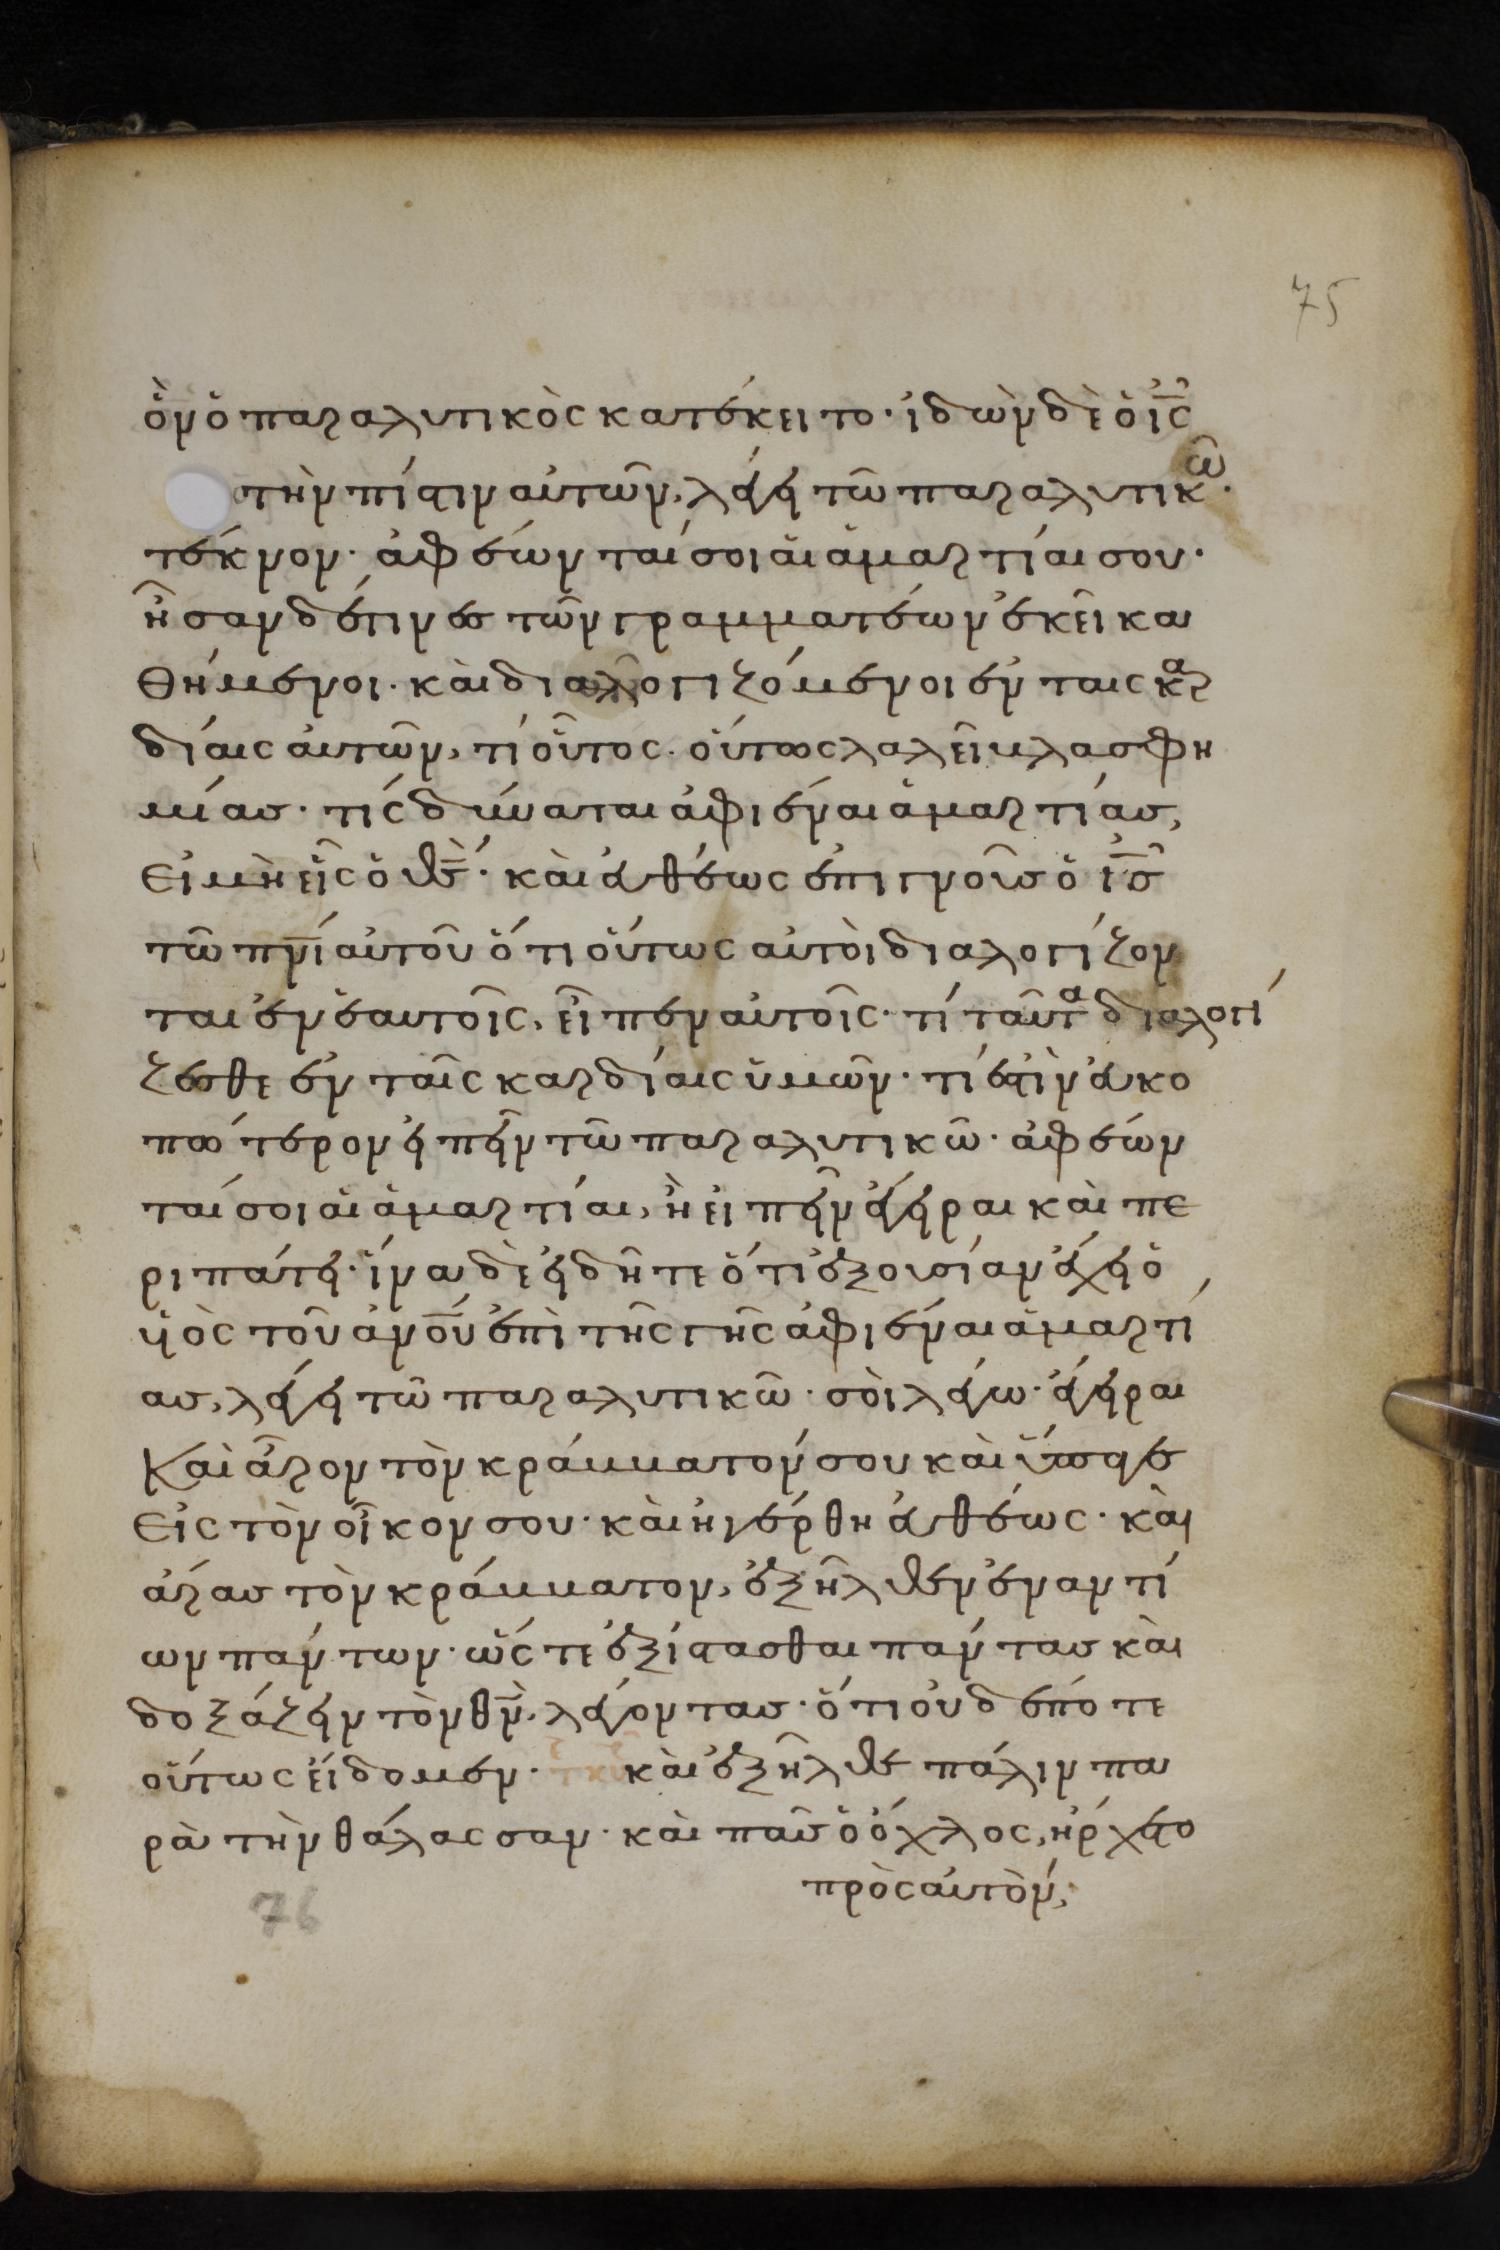 75
ὃν ὁ παραλυτικὸς κατέκειτο· ἰδὼν δὲ ὁ ις
τὴν πίστιν αὐτῶν, λέγει τῶ παραλυτικῶ·
τέκνον· ἀφέωνταί σοι αἱ ἁμαρτίαι σου·
ἦσαν δέ τινες τῶν γραμματέων ἐκεῖ κα
θήμενοι· καὶ διαλογιζόμενοι ἐν ταις καρ
δίαις αὐτῶν, τί οὗτος· οὕτως λαλεῖ βλασφη
μίας· τίς δύναται ἀφιέναι ἁμαρτίας,
εἰ μὴ εἷς ὁ θς· καὶ εὐθέως ἐπιγνοῦς ὁ ις
τῶ πνί αὐτοῦ ὅτι οὕτως αὐτοὶ διαλογίζον
ται ἐν ἑαυτοῖς, εἶπεν αὐτοῖς· τί ταῦτα διαλογί
ζεσθε ἐν ταῖς καρδίαις ὑμῶν· τί ἐστὶν εὐκο
πώτερον εἰπεῖν τῶ παραλυτικῶ· ἀφέων
ταί σοι αἱ ἁμαρτίαι, ἢ εἰπεῖν ἔγειραι καὶ πε
ριπάτει· ἵνα δὲ εἰδῆτε ὅτι ἐξουσίαν ἔχει ὁ
υἱὸς τοῦ ανου ἐπὶ τῆς γῆς ἀφιέναι ἁμαρτί
ας, λέγει τῶ παραλυτικῶ· σοὶ λέγω· ἔγειραι
καὶ ἆρον τὸν κράββατόν σου καὶ ὕπαγε
εἰς τὸν οἶκον σου· καὶ ἠγέρθη εὐθέως· καὶ
ἄρας τὸν κράββατον, ἐξῆλθεν ἐναντί
ων πάντων· ὥστε ἐξίστασθαι πάντας καὶ
δοξάζειν τὸν θν, λέγοντας· ὅτι οὐδέποτε
οὕτως εἴδομεν· καὶ ἐξῆλθε πάλιν πα
ρὰ τὴν θάλασσαν· καὶ πᾶς ὁ ὄχλος, ἤρχετο
πρὸς αὐτὸν,
76